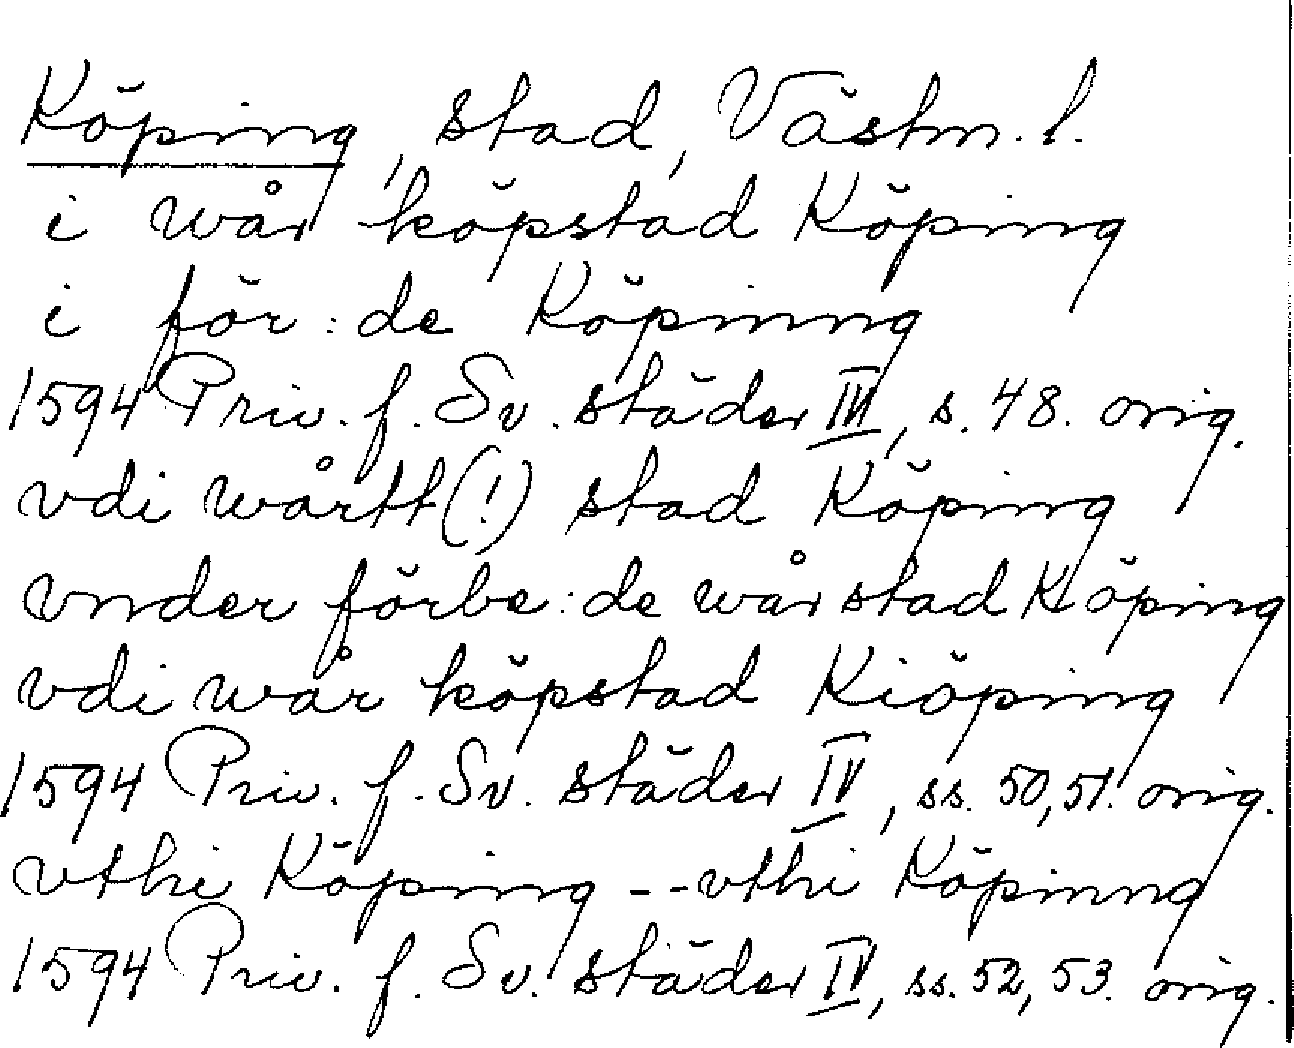 Köping, stad, Västm. l.
i wår köpstad Köping
i för:de Köpinng
1594 Priv. f. Sv. städer IV, s. 48. orig.
vdi wårtt(!) stad Köping
vnder förbe:de wår stad Köping
vdi wår köpstad Kiöping
1594 Priv. f. Sv. städer IV, ss. 50, 51. orig.
vthi Köping -- vthi Köpinng
1594 Priv. f. Sv. städer IV, ss. 52, 53. orig.